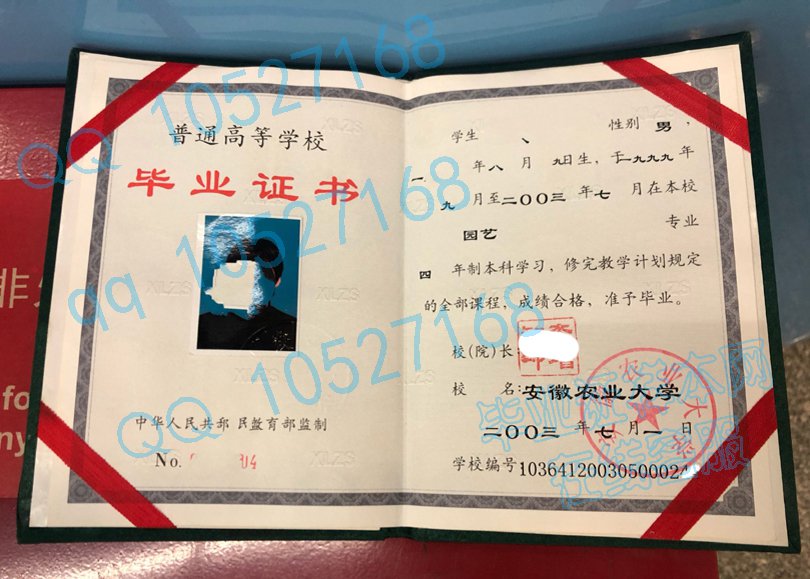 普通高等学校
毕业证书
中华人民共部 民教育部监制
No.
学生 性别 男，
一 年八月九日生，于一九九九年
九月至二〇〇三年七月在本校
园艺 专业
四年制本科学习，修完教学计划规定
的全部课程，成绩合格，准予毕业。
校(院)长：
校 名：安徽农业大学
二〇〇三年七月一日
学校编号1036412003050002
QQ 10527168
qq 10527168
QQ 10527168
毕业证样本网
在线客服
XLZS
XLZS
XLZS
XLZS
非
fo
ny